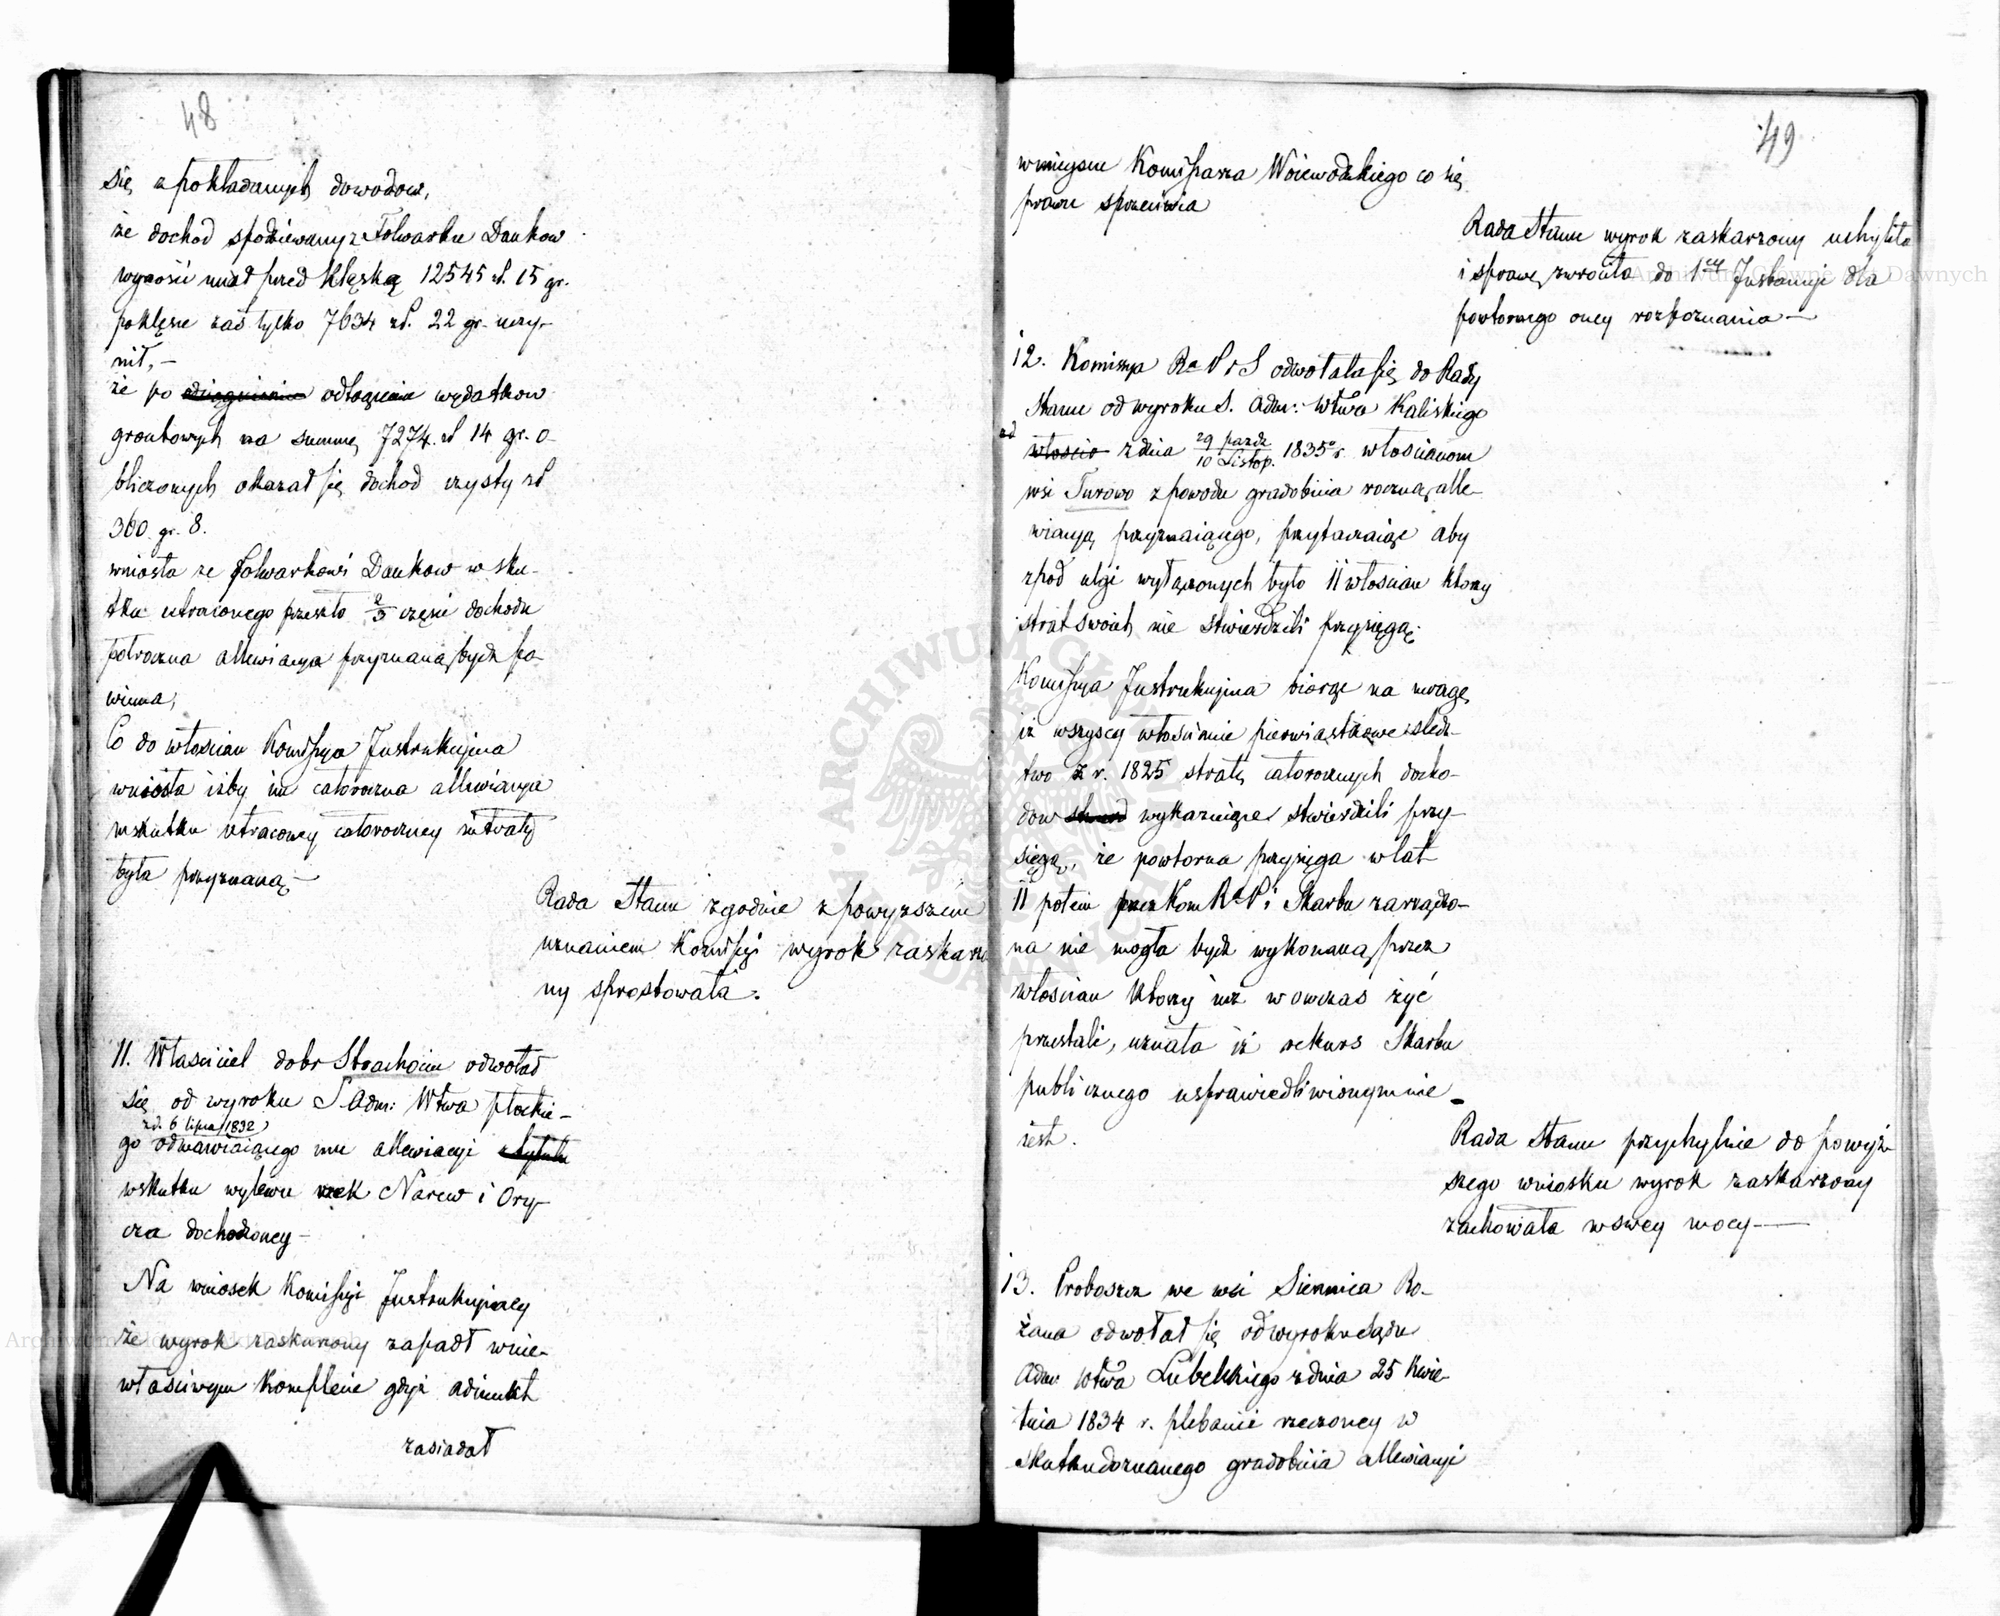 48
się z pokładanych dowodow,
że dochod spodziewany z Folwarku Dankow
wynosić miał przed klęską 12545 zł. 15 gr.
poklęsce zaś tylko 7634 zł. 22 gr. uczy-
nił, —
że po odciągnieniu odtrącenia wydatkow
grontowych na summę 7274. zł 14 gr. o-
bliczonych okazał się dochod czysty zł
360. gr. 8.
wniosła ze folwarkowi Dankow w sku-
tku utraconego przeszło 2/3 części dochodu
połroczna allewiacya przyznaną bydz po-
winna,
Co do włoscian Kommissya Instrukcyina
wniosła iżby im całoroczna allewiacya
wskutku utraconey całoroczney intraty
była przyznaną —
Rada Stanu zgodnie z powyzszem
uznaniem Kommissyi wyrok zaskarżo
ny sprostowała.
11. Właściciel dobr Strachocin odwołał
się od wyroku S. Adm: Wtwa płockie-
z d. 6 lipca 1832
go odmawiaiącego mu allewiacyi z tytułu
wskutku wylewu rzek Narew i Orzy-
cza dochodzoney —
Na wniosek Komissyi Instrukcyiney
że wyrok zaskarzony zapadł wnie-
właściwym komplecie gdyż adiunkt
zasiadał
49
wmieysce Komissarza Woiewodzkiego co się
prawu sprzeciwia
Rada Stanu wyrok zaskarzony uchyliła
i sprawę zwrociła do 1ey Instancyi dla
powtornego oney rozpoznania —
12. Komissya R. P. i S odwołała się do Rady
Stanu od wyroku S. Adm: Wtwa Kaliskiego
z d
włoscio z dnia 29 pazdz / 10 Listop. 1835 r. włoscianom
wsi Turowo z powodu gradobicia roczną alle-
wiacyą przyznaiącego, przytaczaiąc aby
zpod ulgi wyłączonych było 11 włoscian ktorzy
strat swoich nie stwierdzili przysięgą.
Komissya Instrukcyina biorąc na uwagę
iż wszyscy włoscianie pierwiastkowe sledz-
two z r. 1825 stratę całorocznych docho-
dow wykazuiące stwierdzili przy-
sięgą, że powtorna przysięga w lat
11 potem przez Kom R. P. i Skarbu zarządzo-
na nie mogła bydz wykonaną przez
włoscian ktorzy iuz wowczas żyć
przestali, uznała iż rekurs Skarbu
publicznego usprawiedliwionym nie
iest.
Rada Stanu przychylnie do powyż-
szego wniosku wyrok zaskarzony
zachowała w swey mocy —
13. Proboszcz we wsi Siennica Ro-
żana odwołał się od wyroku Sądu
Adm: Wtwa Lubelskiego z dnia 25 Kwie-
tnia 1834 r. plebanii rzeczoney w
skutku doznanego gradobicia allewiacyi
ARCHIWUM GŁÓWNE AKT DAWNYCH
Archiwum Główne Akt Dawnych
Archiwum Główne Akt Dawnych